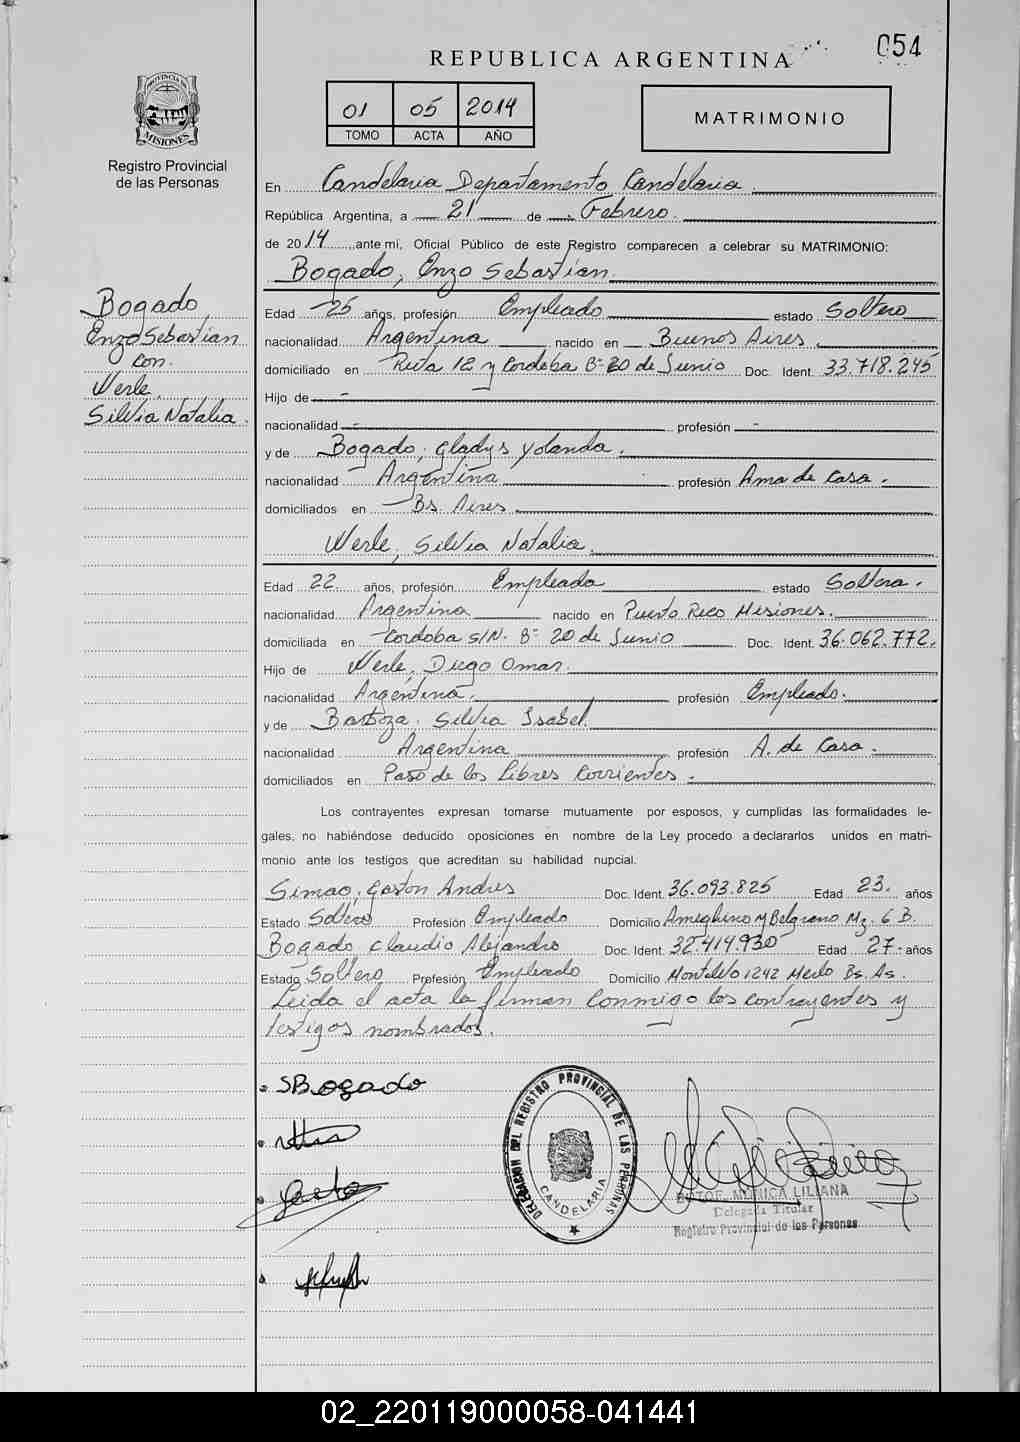 054
REPUBLICA ARGENTINA
PROVINCIA DE
MISIONES
Registro Provincial
de las Personas
01 05 2014
TOMO ACTA AÑO
MATRIMONIO
En Candelaria Departamento Candelaria
República Argentina, a 21 de Febrero.
de 2014, ante mí, Oficial Público de este Registro comparecen a celebrar su MATRIMONIO:
Bogado, Enzo Sebastian
Bogado,
Enzo Sebastian
Con.
Werle,
Silvia Natalia.
Edad 25 años, profesión Empleado estado Soltero
nacionalidad Argentina nacido en Buenos Aires.
domiciliado en Ruta 12 y Cordoba B- 20 de Junio Doc. Ident. 33.718.245
Hijo de -
nacionalidad - profesión -
y de Bogado, Gladys Yolanda.
nacionalidad Argentina profesión Ama de Casa.
domiciliados en Bs. Aires
Werle, Silvia Natalia.
Edad 22 años, profesión Empleada estado Soltera.
nacionalidad Argentina nacido en Puerto Rico Misiones.
domiciliada en Cordoba S/N. B- 20 de Junio Doc. Ident. 36.062.772.
Hijo de Werle, Diego Omar.
nacionalidad Argentina. profesión Empleado.
y de Barboza, Silvia Isabel.
nacionalidad Argentina profesión A. de Casa.
domiciliados en Paso de los Libres Corrientes.
Los contrayentes expresan tomarse mutuamente por esposos, y cumplidas las formalidades le-
gales, no habiéndose deducido oposiciones en nombre de la Ley procedo a declararlos unidos en matri-
monio ante los testigos que acreditan su habilidad nupcial.
Simao, Gaston Andres Doc. Ident. 36.093.825 Edad 23. años
Estado Soltero Profesión Empleado Domicilio Ameghino y Belgrano Mz. 6 B.
Bogado, Claudio Alejandro Doc. Ident. 32.414.930 Edad 27- años
Estado Soltero Profesión Empleado Domicilio 1242 Merlo Bs. As.
Leida el acta la firman Conmigo los contrayentes y
testigos nombrados.
SBogado
DELEGACION DEL REGISTRO PROVINCIAL DE LAS PERSONAS
CANDELARIA
MONICA LILIANA
Delegada Titular
Registro Provincial de las Personas
02_220119000058-041441